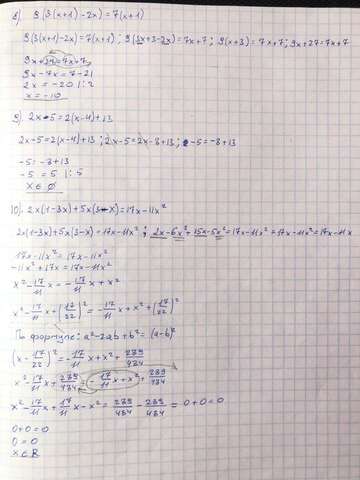 8) 9(3(x+1)-2x)=7(x+1)
9(3(x+1)-2x)=7(x+1); 9(3x+3-2x)=7x+7; 9(x+3)=7x+7; 9x+27=7x+7
9x+27=7x+7
9x-7x=7-27
2x=-20 |:2
x=-10
9) 2x-5=2(x-4)+13
2x-5=2(x-4)+13; 2x-5=2x-8+13; -5=-8+13
-5=-8+13
-5=5 |:5
x∈∅
10) 2x(1-3x)+5x(3-x)=17x-11x²
2x(1-3x)+5x(3-x)=17x-11x²; 2x-6x²+15x-5x²=17x-11x²=17x-11x²=17x-11x
17x-11x²=17x-11x²
-11x²+17x=17x-11x²
x²-17/11x=-17/11x+x²
x²-17/11x+(17/22)²=-17/11x+x²+(17/22)²
По формуле: a²-2ab+b²=(a-b)²
(x-17/22)²=-17/11x+x²+289/484
x²-17/11x+289/484=-17/11x+x²+289/484
x²-17/11x+17/11x-x²=289/484-289/484=0+0=0
0+0=0
0=0
x∈R